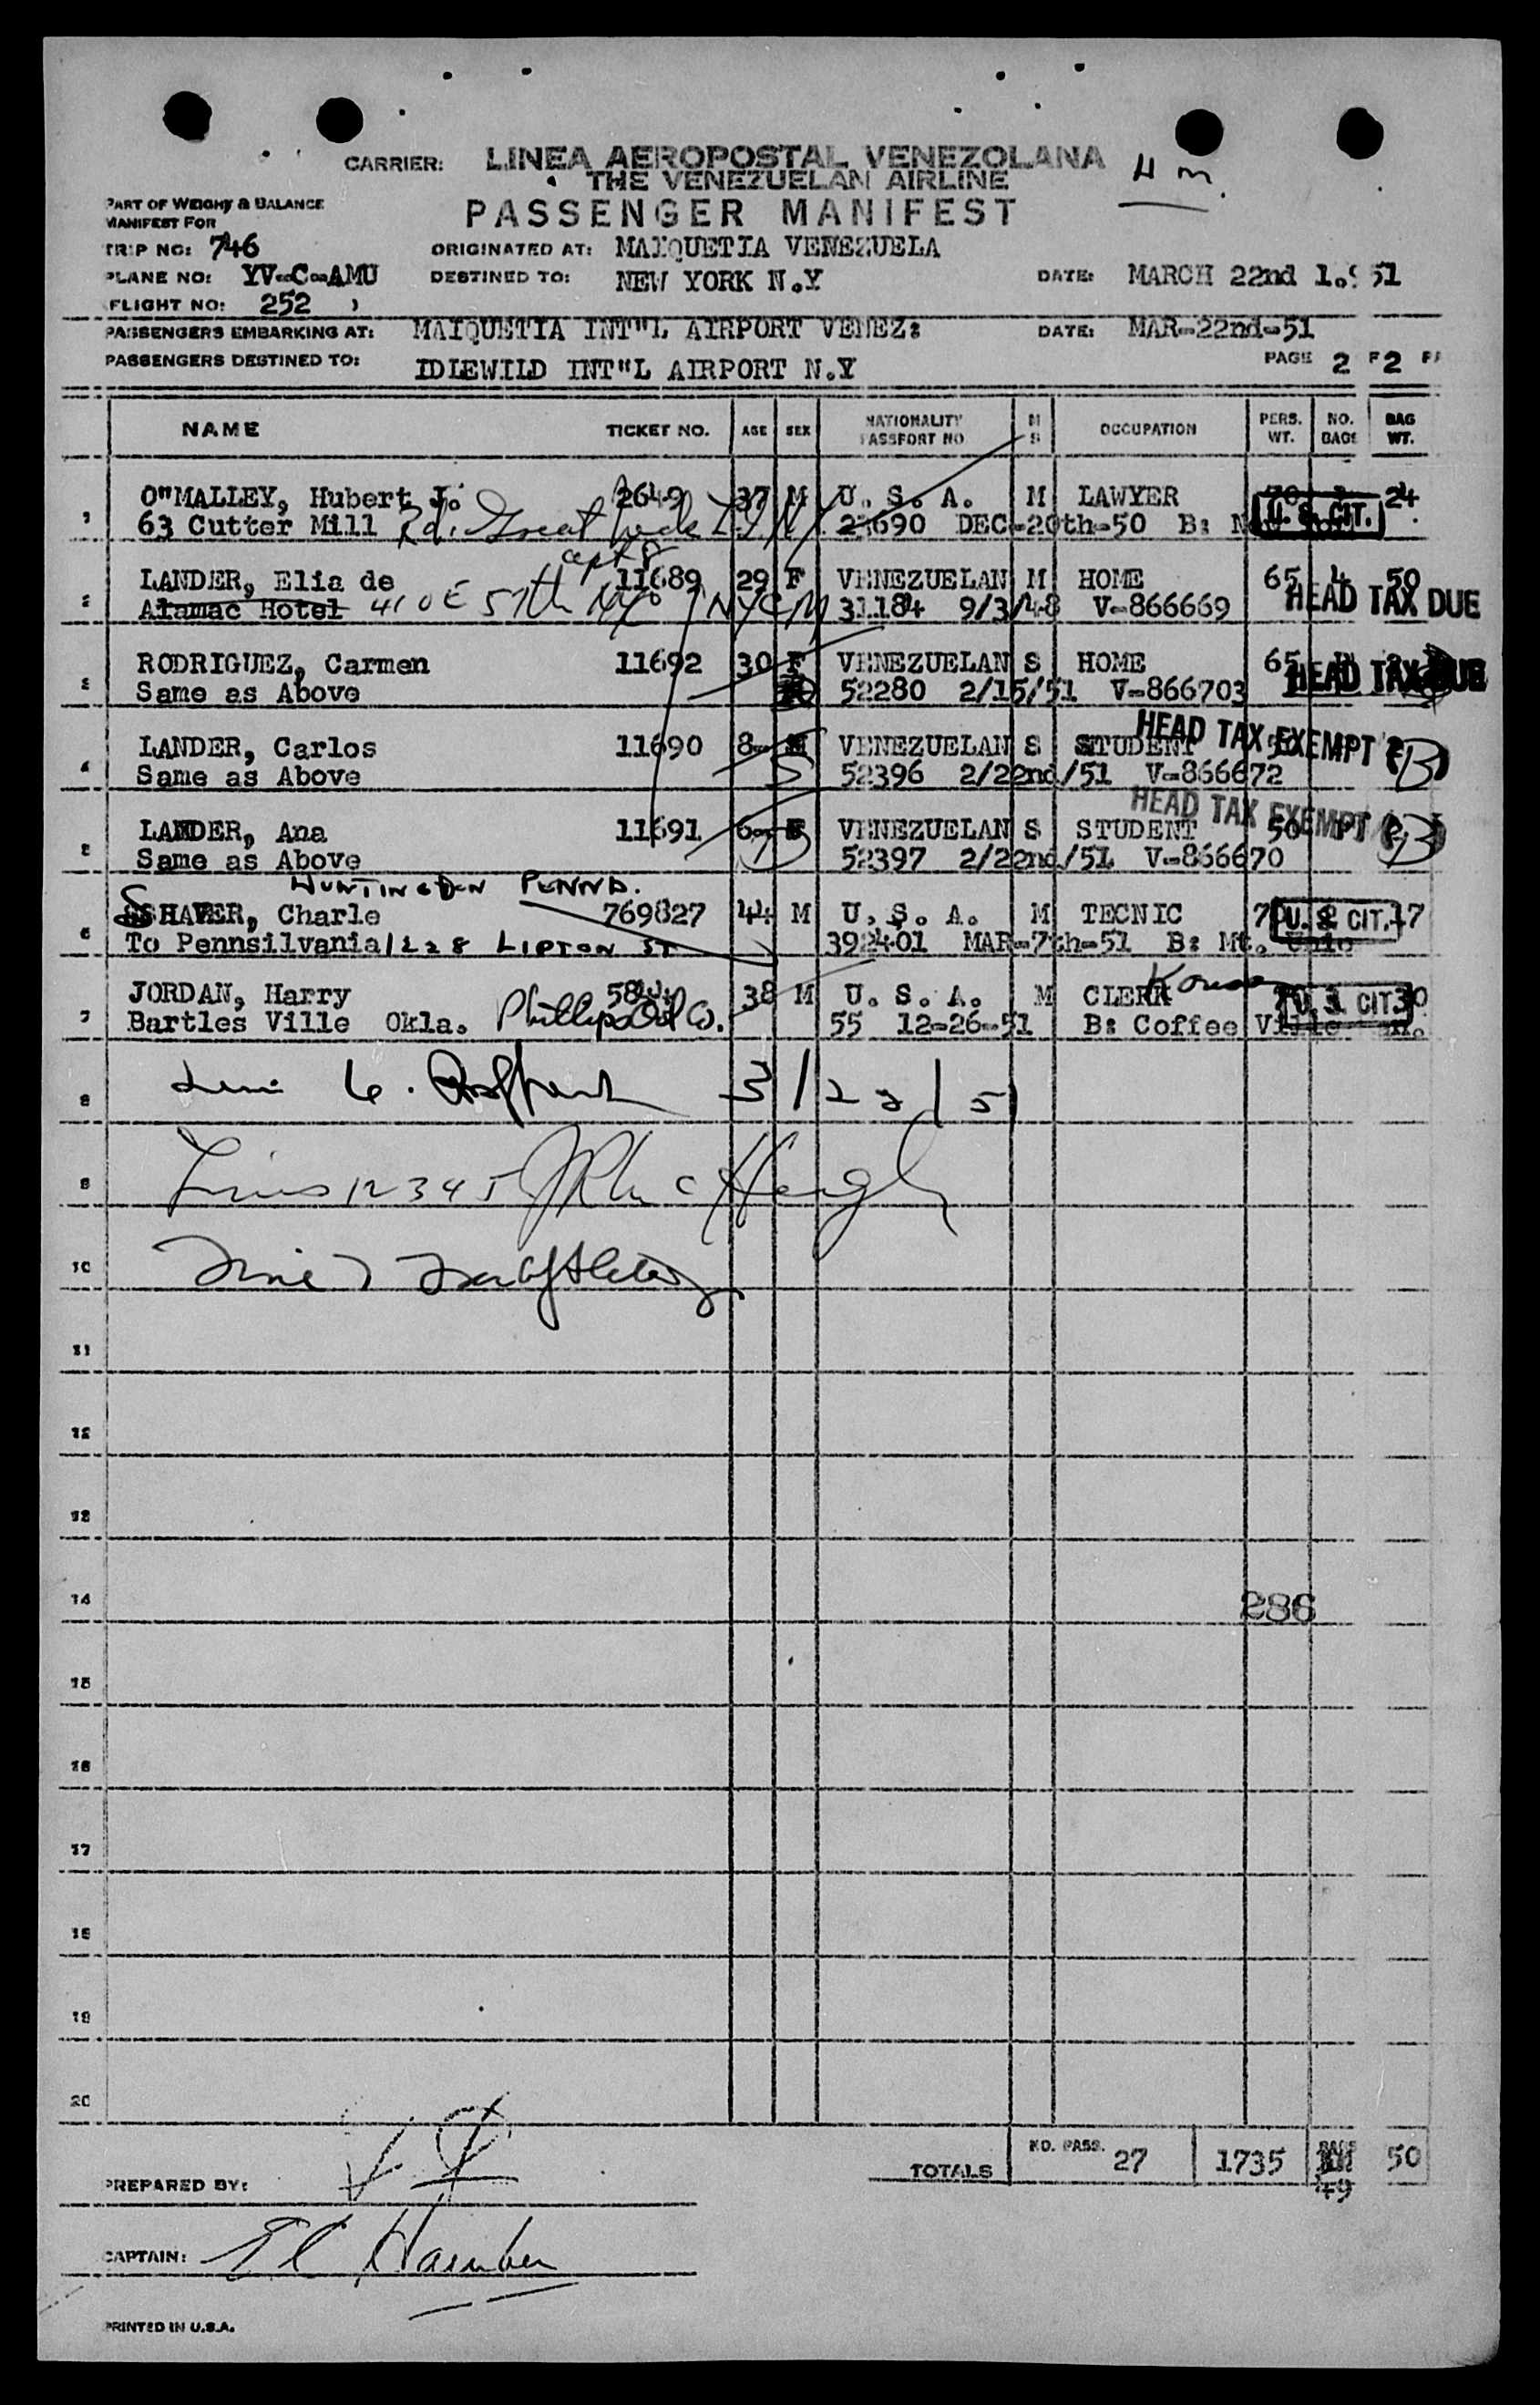 CARRIER: LINEA AEROPOSTAL VENEZOLANA
THE VENEZUELAN AIRLINE
4 m.
PART OF WEIGHT & BALANCE
MANIFEST FOR
PASSENGER MANIFEST
TRIP NO: 746 ORIGINATED AT: MAIQUETIA VENEZUELA
PLANE NO: YV-C-AMU DESTINED TO: NEW YORK N.Y DATE: MARCH 22nd 1.951
FLIGHT NO: 252
PASSENGERS EMBARKING AT: MAIQUETIA INT"L AIRPORT VENEZ: DATE: MAR-22nd-51
PASSENGERS DESTINED TO: IDLEWILD INT"L AIRPORT N.Y PAGE 2 F 2
NAME TICKET NO. AGE SEX NATIONALITY PASSPORT NO M S OCCUPATION PERS. WT. NO. BAGS BAG WT.
1 O"MALLEY, Hubert J. 2649 37 M U. S. A. M LAWYER 24
63 Cutter Mill Rd. Great Neck L.I. N.Y. 23690 DEC-20th-50 B: U. S. CIT.
apt 8
2 LANDER, Elia de 11689 29 F VENEZUELAN M HOME 65 4 50
Alamac Hotel 410 E 57th NYC 31184 9/3/48 V-866669 HEAD TAX DUE
3 RODRIGUEZ, Carmen 11692 30 F VENEZUELAN S HOME 65 HEAD TAX DUE
Same as Above 52280 2/15/51 V-866703
4 LANDER, Carlos 11690 8- VENEZUELAN S STUDENT HEAD TAX EXEMPT (B)
Same as Above 52396 2/22nd/51 V-866672
5 LANDER, Ana 11691 6- F VENEZUELAN S STUDENT 50 HEAD TAX EXEMPT (B)
Same as Above 52397 2/22nd/51 V-866670
HUNTINGDON PENNA.
6 SHAVER, Charle 769827 44 M U. S. A. M TECNIC U. S. CIT. 47
To Pennsilvania 1228 LIPTON ST 392401 MAR-7th-51 B: Mt.
7 JORDAN, Harry 38 M U. S. A. M CLERK U. S. CIT. 30
Bartles Ville Okla. Phillips Oil Co. 55 12-26-51 B: Coffee Ville
8 3/22/51
9 Lines 12345
10
11
12
13
14 286
15
16
17
18
19
20
TOTALS NO. PASS. 27 1735 BAGS 49 50
PREPARED BY:
CAPTAIN:
PRINTED IN U.S.A.